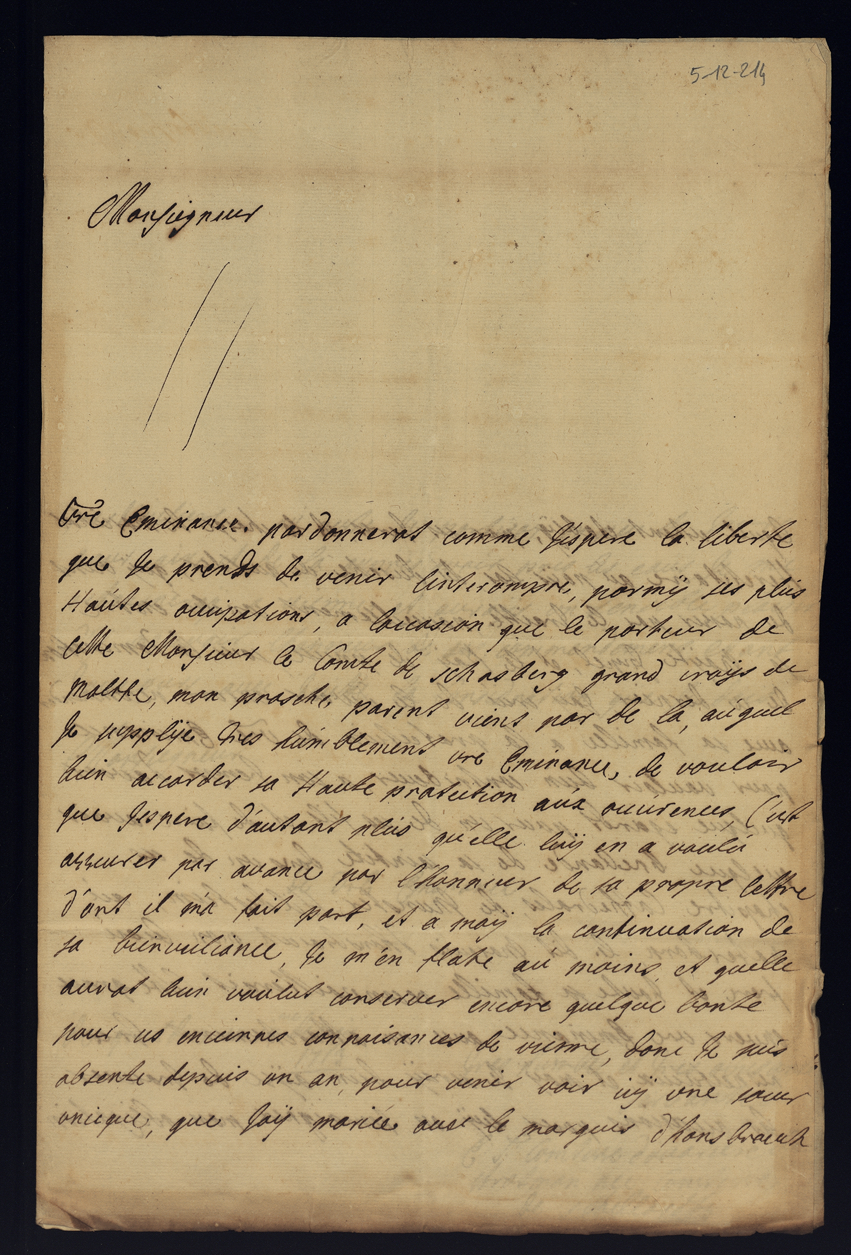 5-12-214
Monseigneur
Vre Eminance pardonnerat comme J'éspere la liberte
que Je prends de venir l'interompre, parmÿ ses plus
Hautes ocupations, a l'occasion que le porteur de
cette Monsieur le Comte de schasberg grand croÿs de
Malthe, mon prosche parent vient par de la, auquel
Je supplije tres humblement vre Eminance, de vouloir
bien accorder sa Haute protection aúx ocurences, C'est
que J'espere d'autant plus qu'elle luÿ en a voulú
asseurer par avance par l'Honneur de sa propre lettre
d'ont il m'a fait part, et a moÿ la continuation de
sa bienveiliance, Je m'en flate aú moins, et quelle
aurat bien voulut conserver encore quelque bonté
pour us enciennes connoisances de vienne, donc Je suis
absente depuis un an, pour venir voir icÿ une soeur
unicque, que J'aÿ mariée avec le marquis d'Hansbroeck